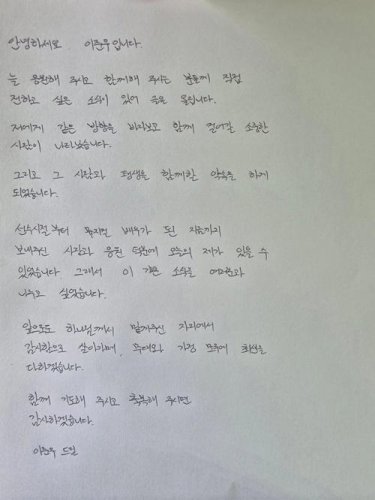 안녕하세요 이준우입니다.
늘 응원해 주시고 함께해 주시는 분들께 직접
전하고 싶은 소식이 있어 글을 올립니다.
저에게 같은 방향을 바라보고 함께 걸어갈 소중한
사람이 나타났습니다.
그리고 그 사람과 평생을 함께할 약속을 하게
되었습니다.
선수시절부터 뮤지컬 배우가 된 지금까지
보내주신 사랑과 응원 덕분에 오늘의 제가 있을 수
있었습니다 그래서 이 기쁜 소식을 여러분과
나누고 싶었습니다.
앞으로도 하나님께서 맡겨주신 자리에서
감사함으로 살아가며, 무대와 가정 모두에 최선을
다하겠습니다.
함께 기도해 주시고 축복해 주시면
감사하겠습니다.
이준우 드림